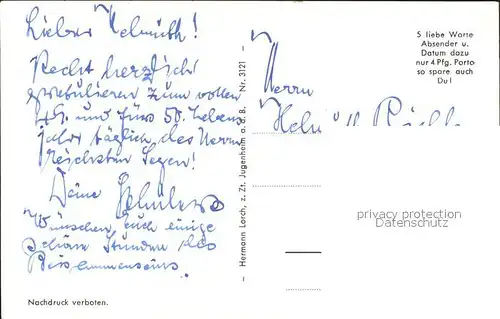 Lieber Helmuth!
Recht herzliche
gratulieren zum vollen
49. und fürs 50. Lebens
jahr täglich des Herrn
reichsten Segen!
Deine
Wünschen Euch einige
schöne Stunden des
Beisammenseins.
Nachdruck verboten.
Hermann Lorch, z. Zt. Jugenheim a. d. B. Nr. 3121
5 liebe Worte
Absender u.
Datum dazu
nur 4 Pfg. Porto
so spare auch
Du!
Herrn
privacy protection
Datenschutz